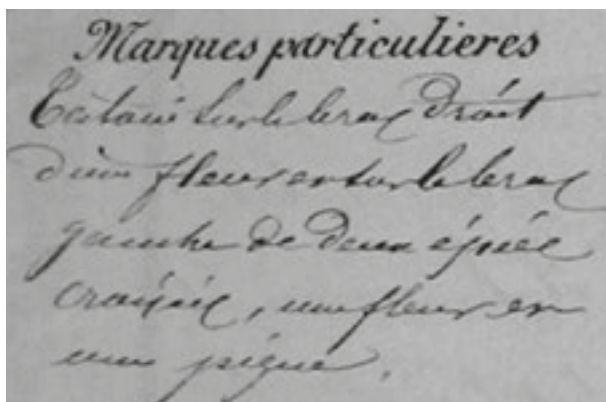 Marques particulieres
sur le bras Droit
d'une fleur et sur le bras
gauche de deux épée
croisée, une fleur et
une